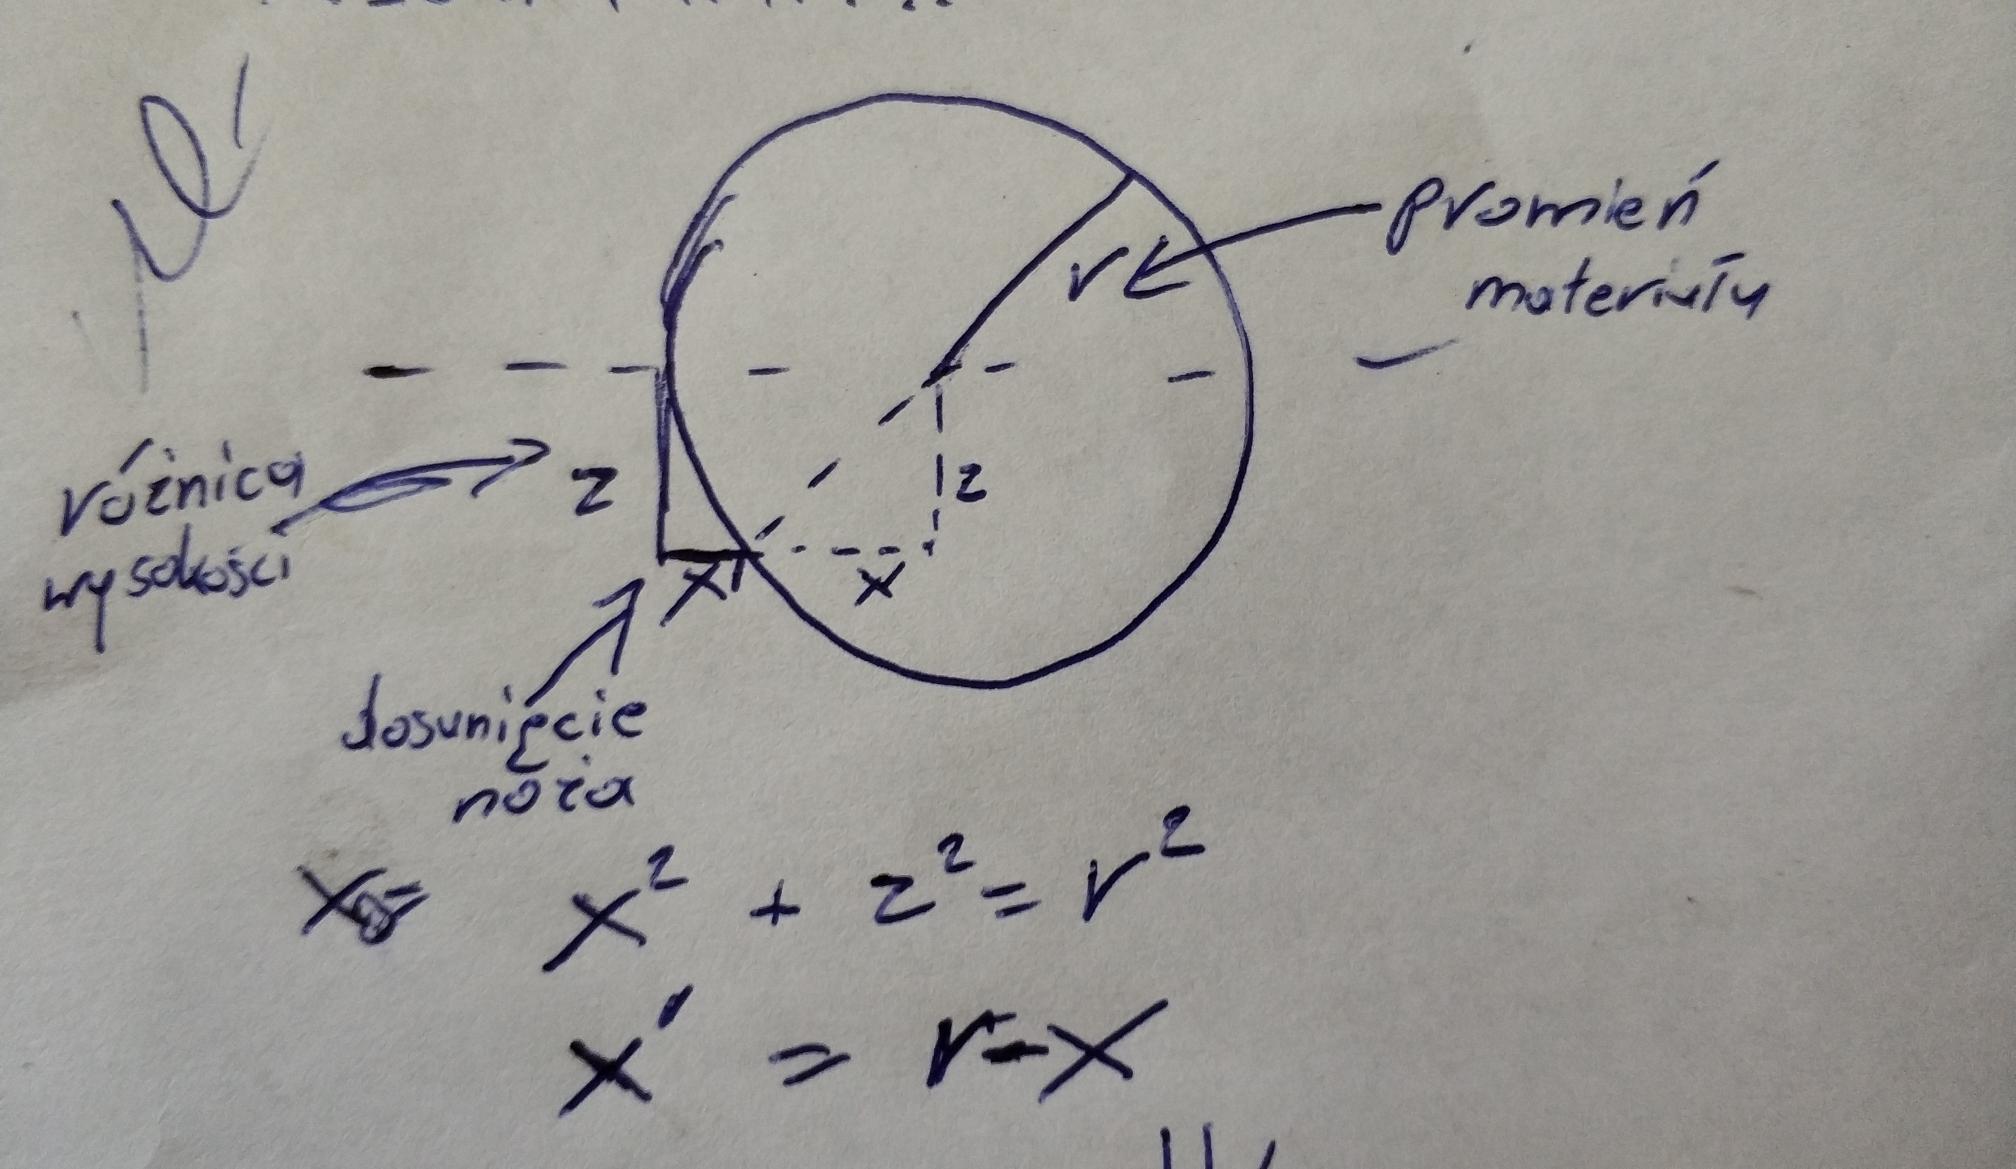 r
promień
materiału
różnica
wysokości
z
z
x'
x
dosunięcie
noża
x² + z² = r²
x' = r-x